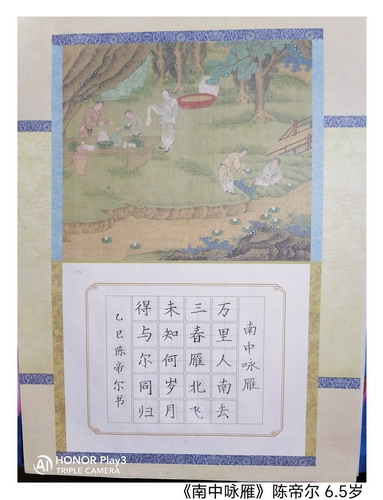 南中咏雁
万里人南去
三春雁北飞
未知何岁月
得与尔同归
乙巳陈帝尔书
HONOR Play3
TRIPLE CAMERA
《南中咏雁》陈帝尔 6.5岁